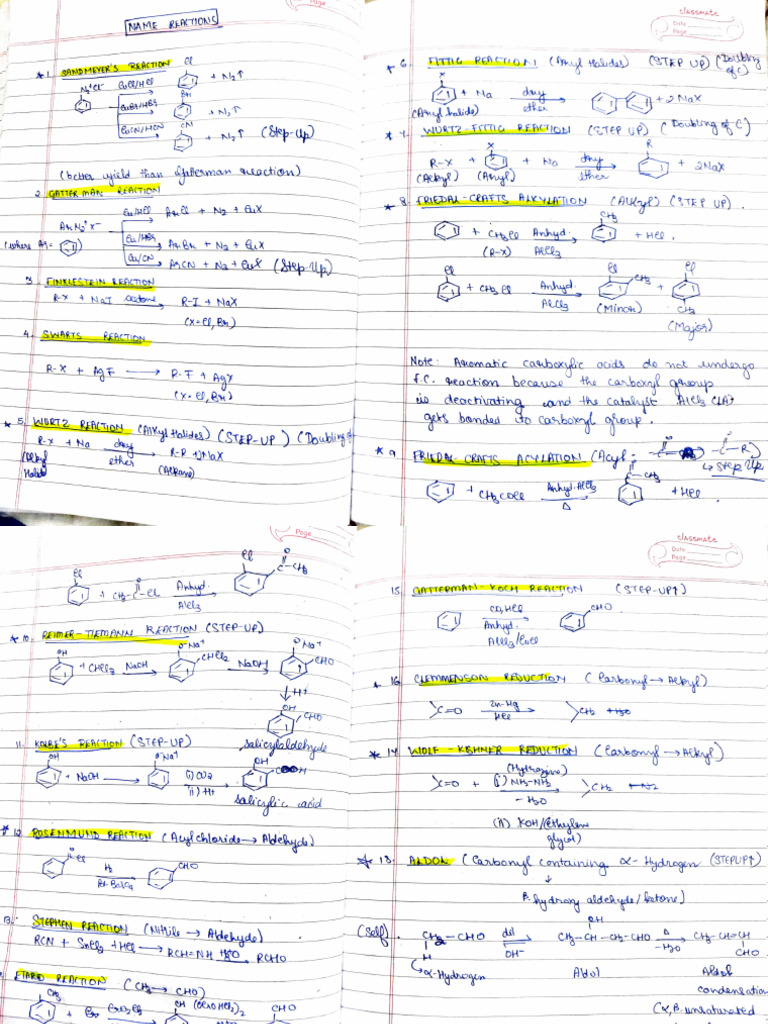 NAME REACTIONS
*1. SANDMEYER'S REACTION
N₂⁺Cl⁻
CuCl/HCl
Cl
+ N₂↑
CuBr/HBr
Br
+ N₂↑
CuCN/HCN
CN
+ N₂↑ (Step-Up)
(better yield than Gatterman reaction)
2. GATTERMAN REACTION
ArN₂⁺X⁻
(where Ar=
Cu/HCl → ArCl + N₂ + CuX
Cu/HBr → ArBr + N₂ + CuX
Cu/CN → ArCN + N₂ + CuX (Step-Up)
3. FINKLESTEIN REACTION
R-X + NaI acetone → R-I + NaX
(X=Cl, Br)
4. SWARTS REACTION
R-X + AgF → R-F + AgX
(X=Cl, Br)
*5. WURTZ REACTION (Alkyl Halides) (STEP-UP) (Doubling of
R-X + Na dry ether → R-R + NaX
(Alkyl Halide) (Alkane)
classmate
Date
Page
*6. FITTIG REACTION (Aryl Halides) (STEP UP) (Doubling of C)
X
+ Na dry ether → + 2NaX
(Aryl halide)
*7. WURTZ-FITTIG REACTION (STEP UP) (Doubling of C)
X R
R-X + + Na dry ether → + 2NaX
(Alkyl) (Aryl)
*8. FRIEDAL-CRAFTS ALKYLATION (Alkyl) (STEP UP).
CH₃
+ CH₃Cl Anhyd. AlCl₃ → + HCl.
(R-X)
Cl Cl Cl
+ CH₃Cl Anhyd. AlCl₃ → CH₃ +
(Minor) CH₃
(Major)
Note: Aromatic carboxylic acids do not undergo
f.c. reaction because the carboxyl group
is deactivating and the catalyst AlCl₃ (LA)
gets bonded to carboxyl group.
*9. FRIEDAL-CRAFTS ACYLATION (Acyl
-C-R)
↳ STEP Up
O
C-CH₃
+ CH₃COCl Anhyd. AlCl₃ Δ → + HCl.
Page
Cl Cl O
+ CH₃-C-Cl Anhyd. AlCl₃ → C-CH₃
*10. REIMER-TIEMANN REACTION (STEP-UP)
OH O⁻Na⁺ O⁻Na⁺
+ CHCl₃ NaOH → CHCl₂ NaOH → CHO
↓H⁺
OH
CHO
salicylaldehyde
11. KOLBE'S REACTION (STEP-UP)
OH O⁻Na⁺ OH
+ NaOH → (i) CO₂ (ii) H⁺ → COOH
salicylic acid
*12. ROSENMUND REACTION (Acylchloride → Aldehyde)
Cl H₂ CHO
Pd-BaSO₄
13. STEPHEN REACTION (Nitrile → Aldehyde)
RCN + SnCl₂ + HCl → RCH=NH H₂O → RCHO
ETARD REACTION (CH₃ → CHO)
CH₃ CH (OCrOHCl₂)₂ CHO
classmate
Date
Page
15. GATTERMAN-KOCH REACTION (STEP-UP↑)
CO, HCl Anhyd. AlCl₃/CuCl → CHO
*16. CLEMMENSON REDUCTION (Carbonyl → Alkyl)
C=O Zn-Hg HCl → CH₂ + H₂O
*17. WOLF-KSHNER REDUCTION (Carbonyl → Alkyl)
(Hydrazine)
C=O + (i) NH₂-NH₂ → CH₂ + N₂
-H₂O
(ii) KOH/Ethylene
glycol
*18. ALDOL (Carbonyl containing α-Hydrogen (STEPUP↑)
↓
β hydroxy aldehyde/ketone)
OH
(Self). CH₂-CHO dil OH⁻ ⇌ CH₃-CH-CH₂-CHO Δ -H₂O → CH₃-CH=CH
H CHO
↳ α-Hydrogen Aldol Aldol
condensation
(α,β-unsaturated